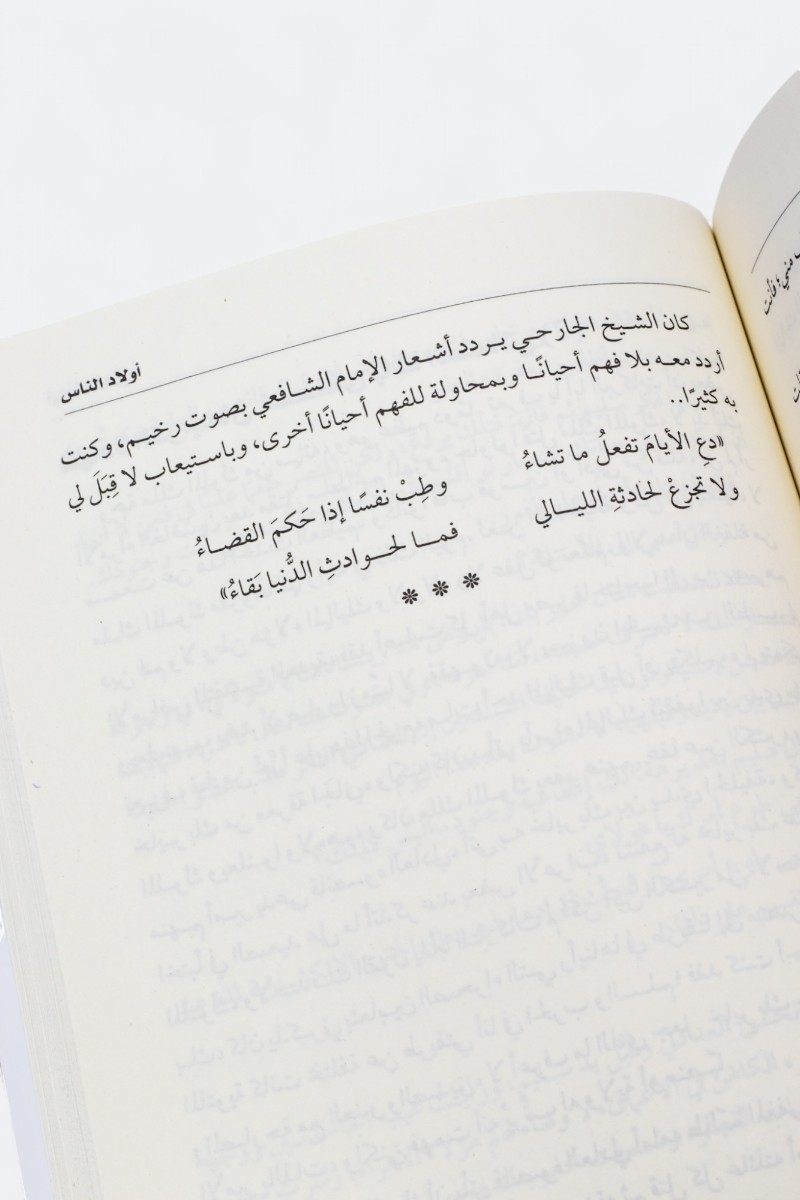 أولاد الناس
كان الشيخ الجارحي يردد أشعار الإمام الشافعي بصوت رخيم، وكنت
أردد معه بلا فهم أحيانًا وبمحاولة للفهم أحيانًا أخرى، وباستيعاب لا قِبَلَ لي
به كثيرًا..
«دعِ الأيامَ تفعلُ ما تشاءُ وطِبْ نفسًا إذا حَكمَ القضاءُ
ولا تجزعْ لحادثةِ الليالي فما لحوادثِ الدُّنيا بَقاءُ»
* * *